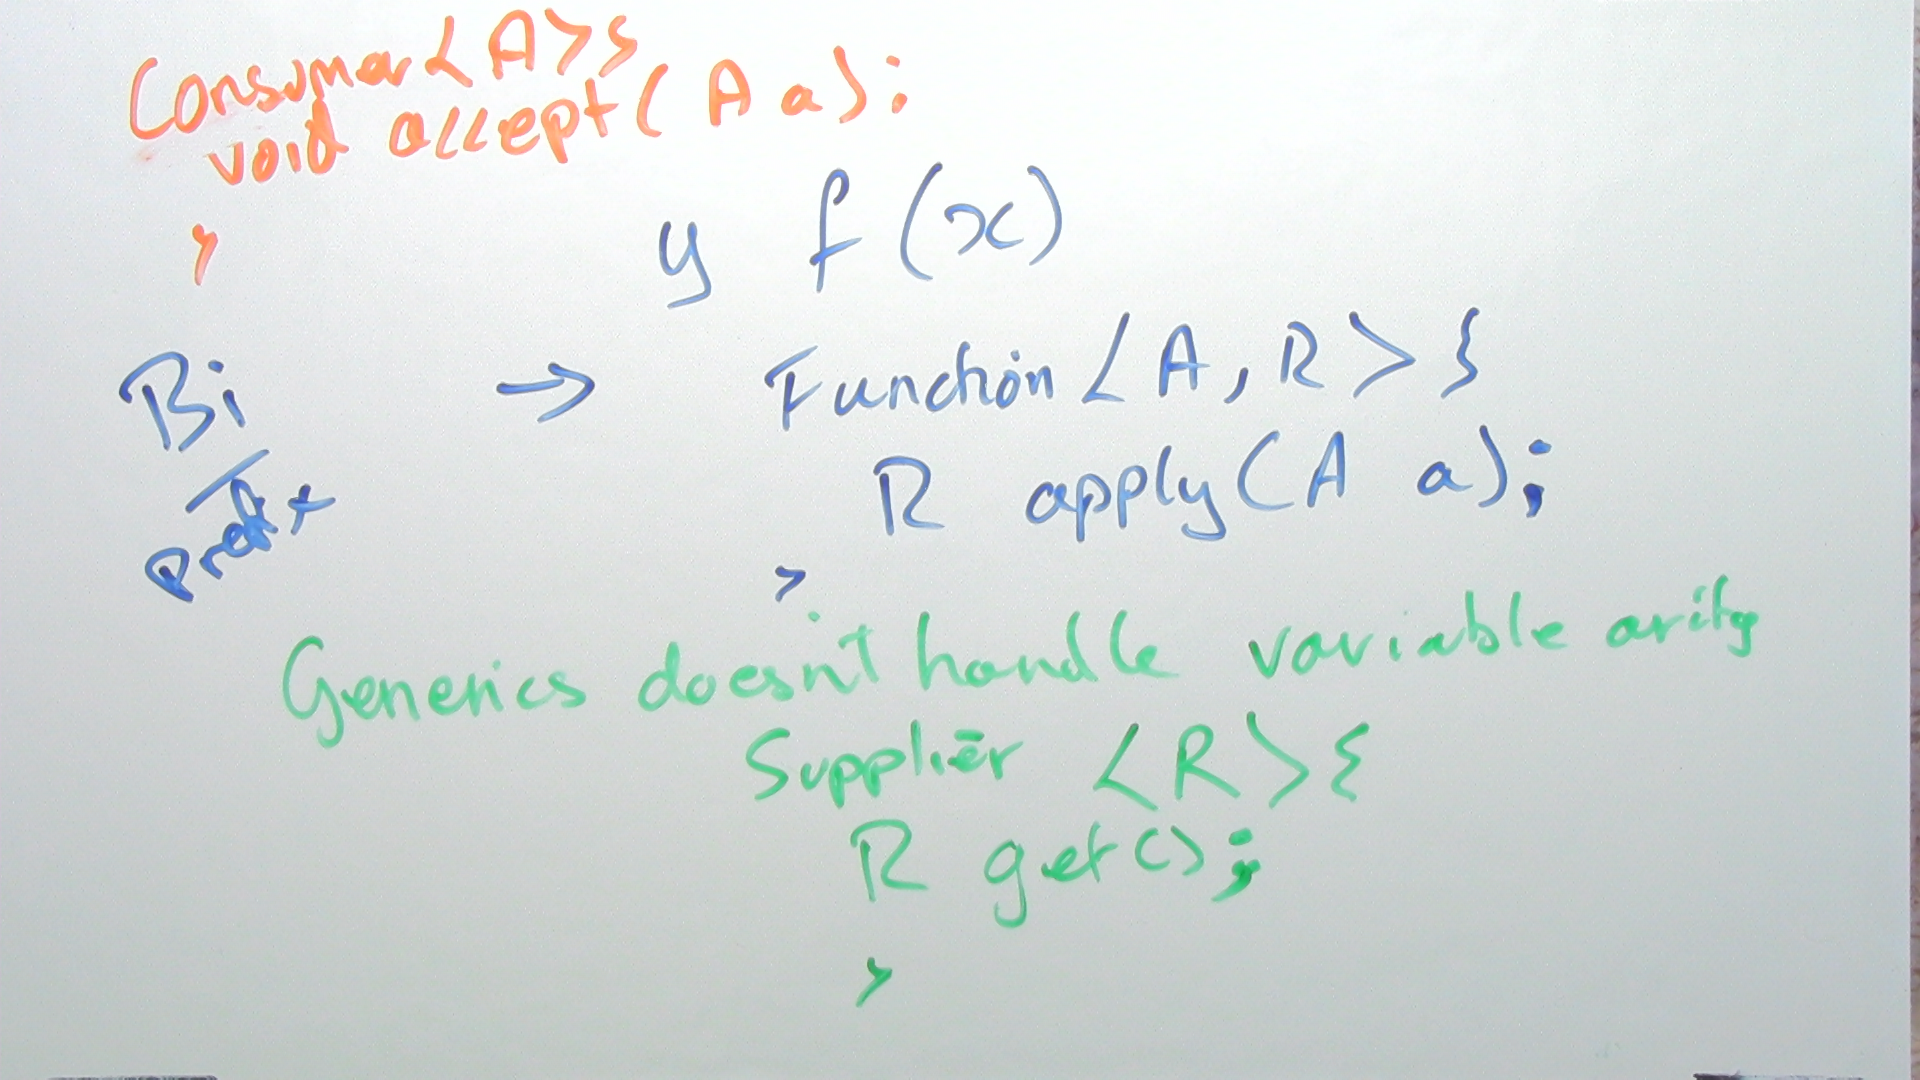 Consumer<A>{
void accept(A a);
}
y f(x)
Bi
prefix
→ Function<A, R> {
R apply(A a);
}
Generics doesn't handle variable arity
Supplier <R> {
R get();
}